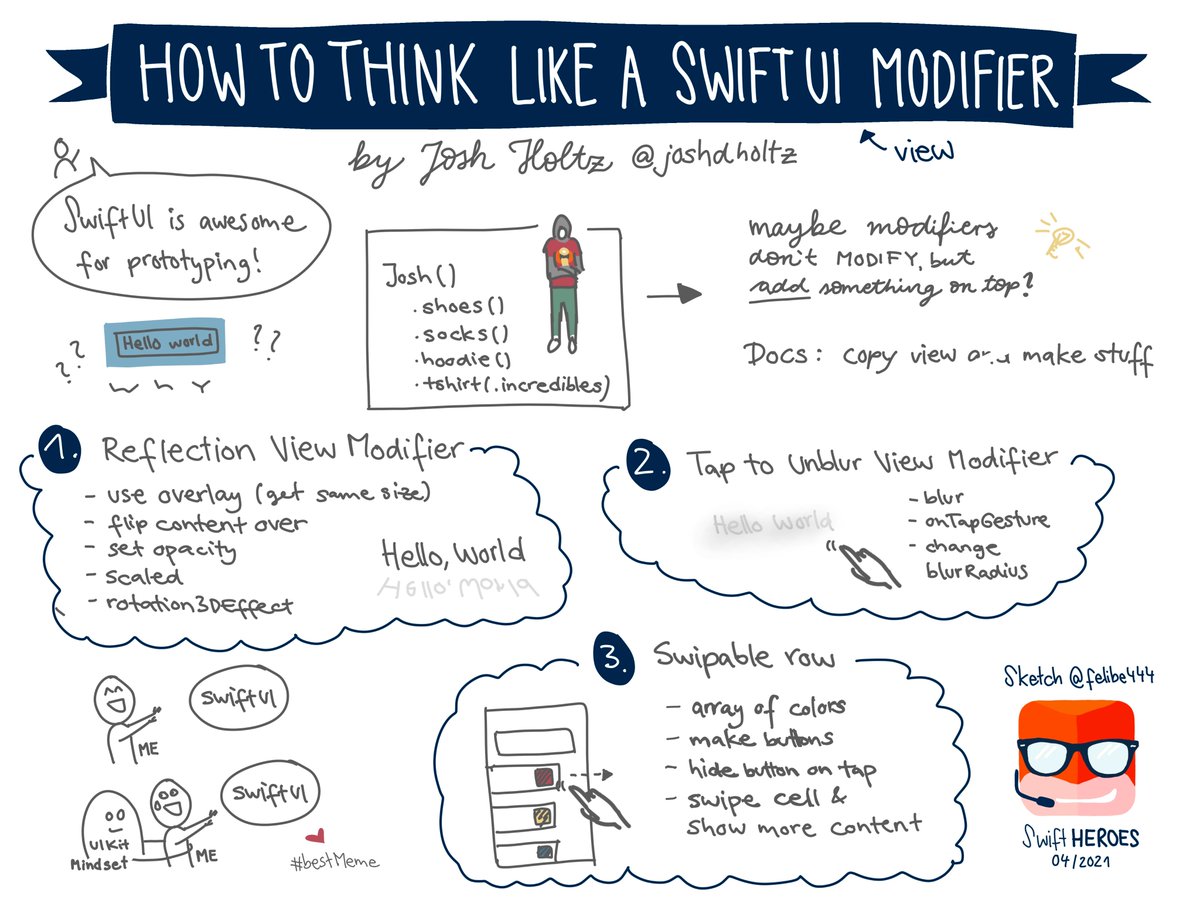 HOW TO THINK LIKE A SWIFTUI MODIFIER
by Josh Holtz @joshdholtz
view
SwiftUI is awesome
for prototyping!
Hello world
? ?
? ?
W h Y
Josh()
.shoes()
.socks()
.hoodie()
.tshirt(.incredibles)
maybe modifiers
don't MODIFY, but
add something on top?
Docs: copy view and make stuff
1. Reflection View Modifier
- use overlay (get same size)
- flip content over
- set opacity
- scaled
- rotation3DEffect
Hello, World
Hello, World
2. Tap to Unblur View Modifier
Hello World
- blur
- onTapGesture
- change
blurRadius
3. Swipable row
- array of colors
- make buttons
- hide button on tap
- swipe cell &
show more content
SwiftUI
ME
SwiftUI
UIKit
Mindset
ME
#bestMeme
Sketch @felibe444
Swift HEROES
04/2021